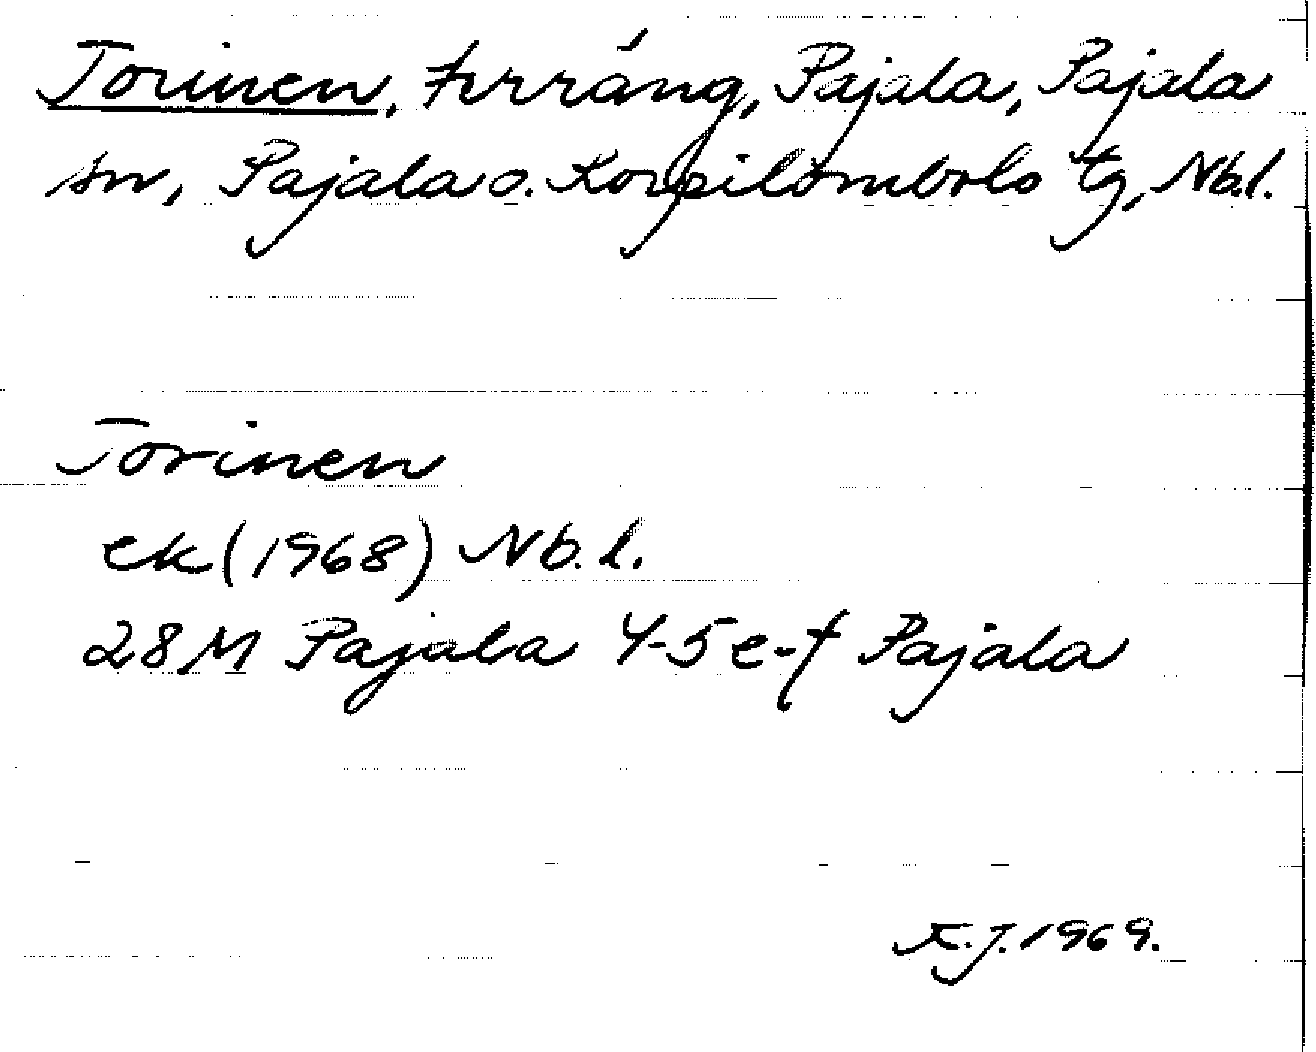 Torinen, terräng, Pajala, Pajala
sn, Pajala o. Korpilombolo tg, Nb.l.
Torinen
ek (1968) Nb. l.
28M Pajala 4-5 e-f Pajala
K.J. 1969.